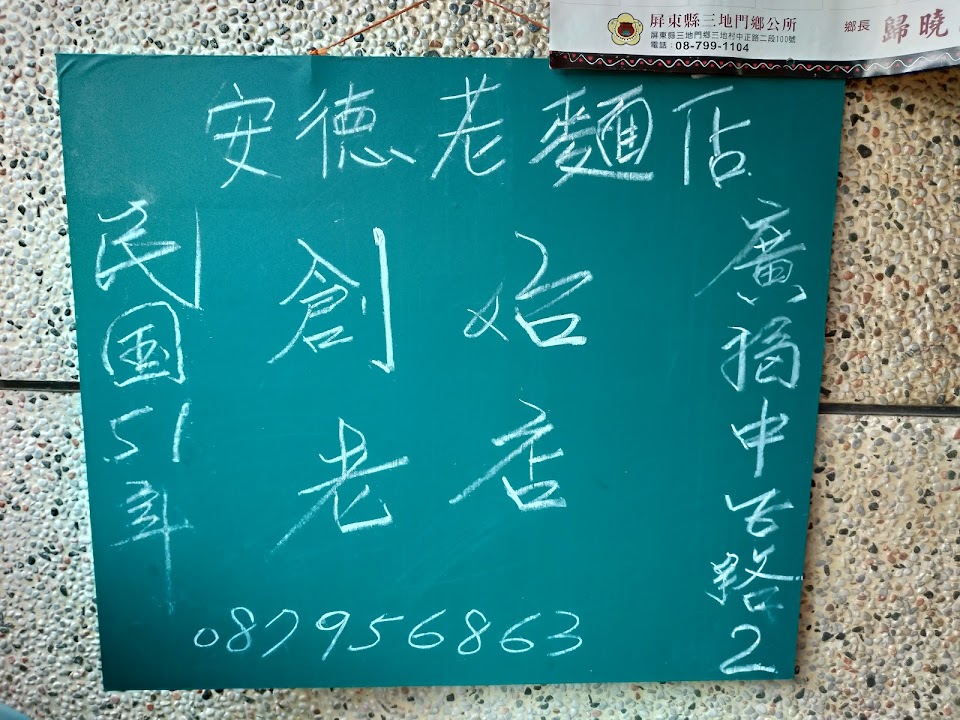 屏東縣三地門鄉公所
屏東縣三地門鄉三地村中正路二段100號
電話：08-799-1104
鄉長 歸曉
安德老麵店
民国51年
創始
老店
廣福中路2
087956863